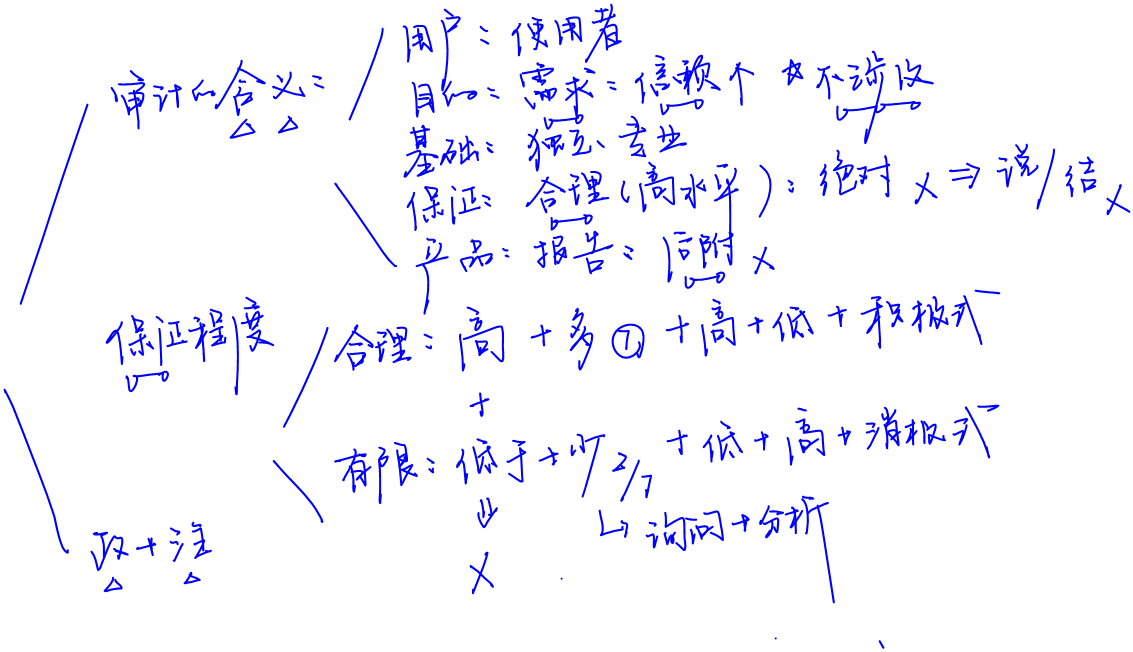 审计的含义：
用户：使用者
目的：需求：信赖个 * 不涉及
基础：独立、专业
保证：合理（高水平）：绝对 × ⇒ 说/结 ×
产品：报告：后附 ×
保证程度
合理：高 + 多 ⑦ + 高 + 低 + 积极式
+
有限：低于 + 少 2/7 + 低 + 高 + 消极式
⇓
↳ 询问 + 分析
×
政 + 注